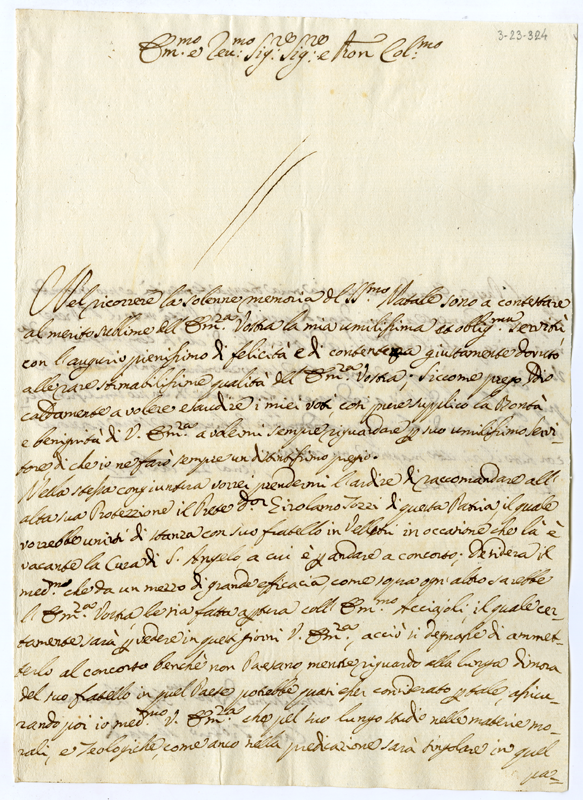 3-23-324
Em.mo e Rev.mo Sig.re Sig.re e Pron Col.mo
Nel ricorrere la solenne memoria del SS.mo Natale sono a contestare
al merito sublime dell'Em.za Vostra la mia umilissima ed oblig.ma servitù
con l'augurio pienissimo di felicità e di contentezza giustamente dovuto
alle rare stimabilissime qualità dell'Em.za Vostra; siccome prego Iddio
caldamente a volere esaudire i miei voti così pure supplico la Bontà
e benignità di V. Em.za a volermi sempre riguardare p suo umilissimo servi=
tore di che io ne farò sempre un distintissimo pregio.
Nella stessa congiuntura vorrei prendermi l'ardire di raccomandare all'
alta sua Protezzione il Prete D.or Girolamo di questa Patria, il quale
vorrebbe unirsi di stanza con suo fratello in Velletri in occasione che là è
vacante la Cura di S. Angelo a cui è p andare a concorso; desidera il
med.mo che da un mezzo di grande efficacia, come sopra ogn'altro sarebbe
l'Em.za Vostra le sia fatta apertura coll'Em.mo Acciajoli, il quale cer=
tamente sarà p vedere in questi giorni V. Em.za, acciò si degnasse di ammet=
terlo al concorso benchè non Paesano mentre riguardo alla lunga dimora
del suo fratello in quel Paese potrebbe quasi esser considerato p tale, assicu=
rando poi io med.mo V. Em.za che pel suo lungo studio nelle materie mo=
rali, e Teologiche, come anco nella predicazione sarà singolare in quel
par=